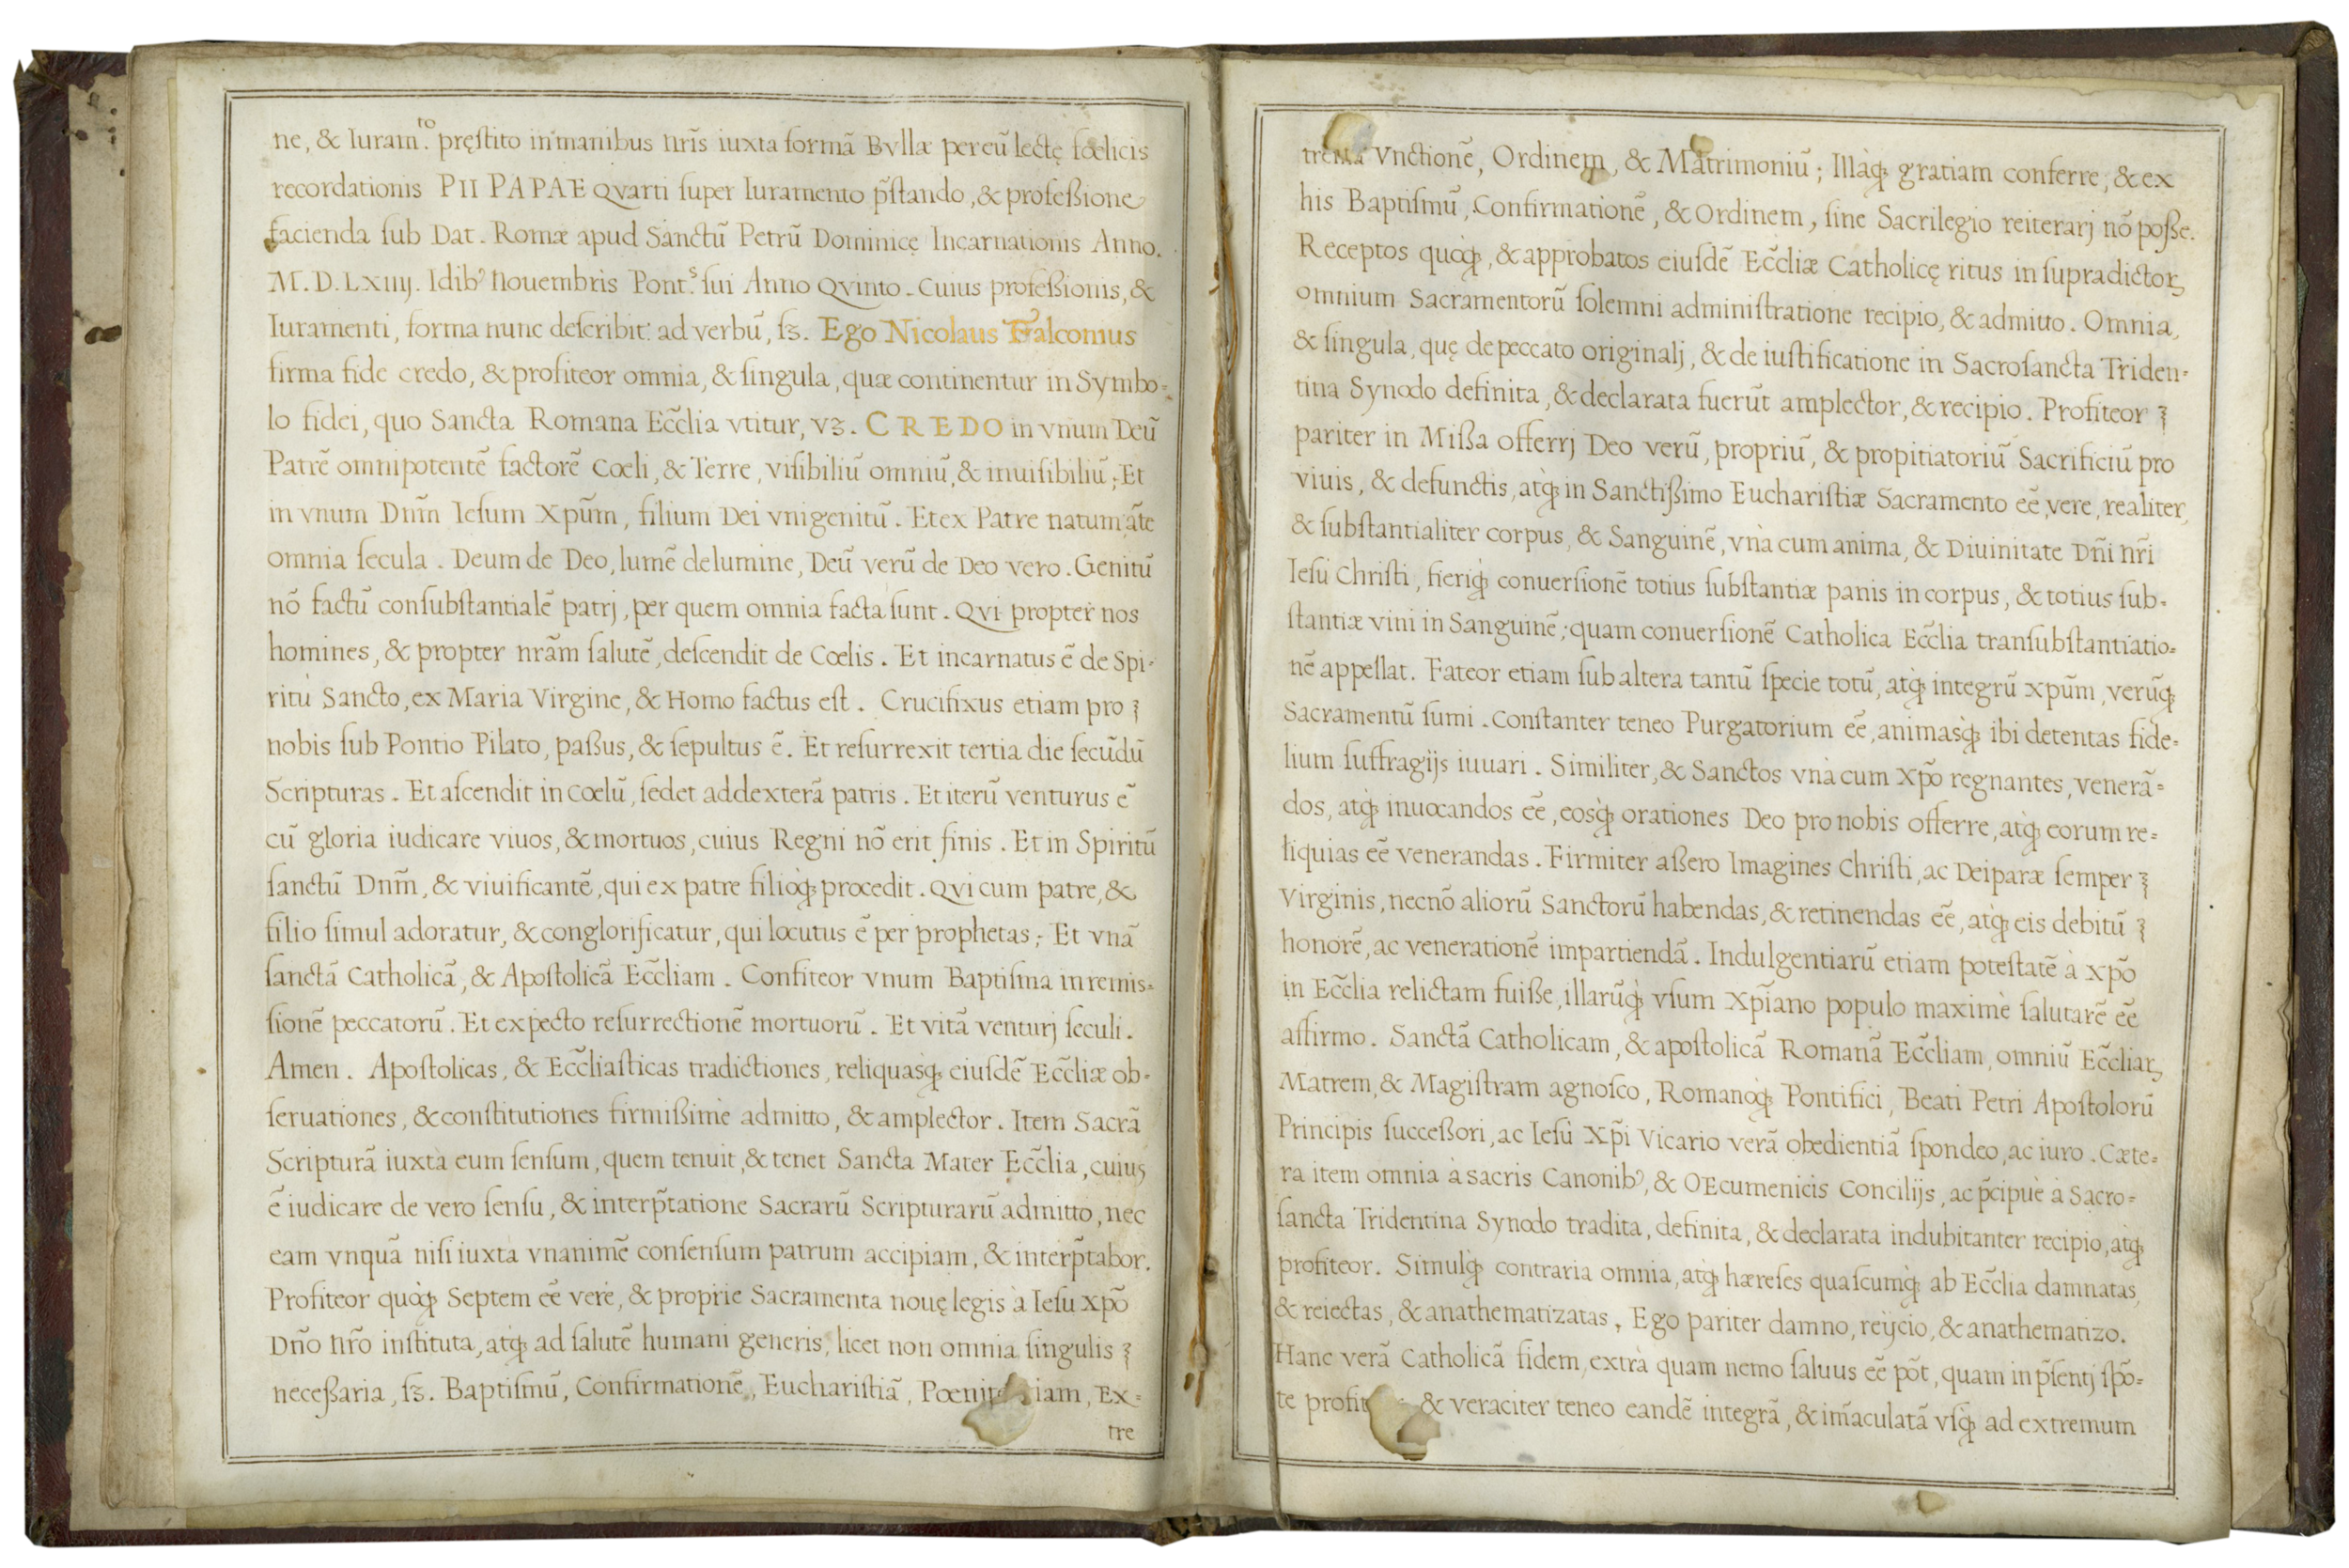 ne, & Iuram.to pręſtito in manibus nr̃is iuxta formã Bvllæ per eũ lectę fœlicis
recordationis PII PAPAE Qvarti ſuper Iuramento p̃ſtando, & profeßione
facienda ſub Dat. Romæ apud Sanctũ Petrũ Dominicę Incarnationis Anno.
M.D.LXIIIJ. Idibꝰ Nouembris Pont.s ſui Anno Qvinto. Cuius profeßionis, &
Iuramenti, forma nunc deſcribit: ad verbũ, ſꝫ. Ego Nicolaus Falconius
firma fide credo, & profiteor omnia, & ſingula, quæ continentur in Symbo-
lo fidei, quo Sancta Romana Ecc̃lia vtitur, vꝫ. CREDO in vnum Deũ
Patrẽ omnipotentẽ factorẽ Cœli, & Terre, viſibiliũ omniũ, & inuiſibiliũ; Et
in vnum Dnm̃ Ieſum Xpũm, filium Dei vnigenitũ. Et ex Patre natum ãte
omnia ſecula. Deum de Deo, lumẽ de lumine, Deũ verũ de Deo vero. Genitũ
nõ factũ conſubſtantialẽ patrj, per quem omnia facta ſunt. Qvi propter nos
homines, & propter nrãm ſalutẽ, deſcendit de Cœlis. Et incarnatus ẽ de Spi-
ritù Sancto, ex Maria Virgine, & Homo factus eſt. Crucifixus etiam pro
nobis ſub Pontio Pilato, paßus, & ſepultus ẽ. Et reſurrexit tertia die ſecũdũ
Scripturas. Et aſcendit in Cœlũ, ſedet ad dexterã patris. Et iterũ venturus ẽ
cũ gloria iudicare viuos, & mortuos, cuius Regni nõ erit finis. Et in Spiritũ
ſanctũ Dnm̃, & viuificantẽ, qui ex patre filioq̀ꝫ procedit. Qvi cum patre, &
filio ſimul adoratur, & conglorificatur, qui locutus ẽ per prophetas; Et vnã
ſanctã Catholicã, & Apoſtolicã Ecc̃liam. Confiteor vnum Baptiſma in remis-
ſionẽ peccatorũ. Et expecto reſurrectionẽ mortuorũ. Et vitã venturj ſeculi.
Amen. Apoſtolicas, & Ecc̃liaſticas tradictiones, reliquasq̀ꝫ eiuſdẽ Ecc̃liæ ob-
ſeruationes, & conſtitutiones firmißimè admitto, & amplector. Item Sacrã
Scripturã iuxtà eum ſenſum, quem tenuit, & tenet Sancta Mater Ecc̃lia, cuius
ẽ iudicare de vero ſenſu, & interp̃tatione Sacrarũ Scripturarũ admitto, nec
eam vnquã niſi iuxtà vnanimẽ conſenſum patrum accipiam, & interp̃tabor.
Profiteor quoq̀ꝫ Septem eẽ verè, & propriè Sacramenta nouę legis à Ieſu Xpõ
Dñõ nr̃o inſtituta, atq̀ꝫ ad ſalutẽ humani generis, licet non omnia ſingulis
neceßaria, ſꝫ. Baptiſmũ, Confirmationẽ, Euchariſtiã, Pœnitentiam, Ex-
tre
trema Vnctionẽ, Ordinem, & Matrimoniũ; Illàq̀ꝫ gratiam conferre, & ex
his Baptiſmũ, Confirmationẽ, & Ordinem, ſine Sacrilegio reiterarj nõ poſſe.
Receptos quoq̀ꝫ, & approbatos eiuſdẽ Ecc̃liæ Catholicę ritus in ſupradictoꝝ
omnium Sacramentorũ ſolemni adminiſtratione recipio, & admitto. Omnia,
& ſingula, quę de peccato originalj, & de iuſtificatione in Sacroſancta Triden-
tina Synodo definita, & declarata fuerũt amplector, & recipio. Profiteor
pariter in Mißa offerrj Deo verũ, propriũ, & propitiatoriũ Sacrificiũ pro
viuis, & defunctis, atq̀ꝫ in Sanctißimo Euchariſtiæ Sacramento eẽ vere, realiter,
& ſubſtantialiter corpus, & Sanguinẽ, vnà cum anima, & Diuinitate Dñi nr̃i
Ieſu Chriſti, fieriq̀ꝫ conuerſionẽ totius ſubſtantiæ panis in corpus, & totius ſub-
ſtantiæ vini in Sanguinẽ; quam conuerſionẽ Catholica Ecc̃lia tranſubſtantiatio-
nẽ appellat. Fateor etiam ſub altera tantũ ſpecie totũ, atq̀ꝫ integrũ xpũm, verũq̀ꝫ
Sacramentũ ſumi. Conſtanter teneo Purgatorium eẽ, animasq̀ꝫ ibi detentas fide-
lium ſuffragijs iuuari. Similiter, & Sanctos vnà cum Xpõ regnantes, venerã-
dos, atq̀ꝫ inuocandos eẽ, eosq̀ꝫ orationes Deo pro nobis offerre, atq̀ꝫ eorum re-
liquias eẽ venerandas. Firmiter aßero Imagines Chriſti, ac Deiparæ ſemper
Virginis, necnõ aliorũ Sanctorũ habendas, & retinendas eẽ, atq̀ꝫ eis debitũ
honorẽ, ac venerationẽ impartiendã. Indulgentiarũ etiam poteſtatẽ à xpõ
in Ecc̃lia relictam fuiße, illarũq̀ꝫ vſum Xpĩano populo maximè ſalutarẽ eẽ
affirmo. Sanctã Catholicam, & apoſtolicã Romanã Ecc̃liam, omniũ Ecc̃liaꝝ
Matrem, & Magiſtram agnoſco, Romanoq̀ꝫ Pontifici, Beati Petri Apoſtolorũ
Principis ſucceßori, ac Ieſù Xp̃i Vicario verã obedientiã ſpondeo, ac iuro. Cæte-
ra item omnia à sacris Canonibꝰ, & OEcumenicis Concilijs, ac p̃cipuè à Sacro-
ſancta Tridentina Synodo tradita, definita, & declarata indubitanter recipio, atq̀ꝫ
profiteor. Simulq̀ꝫ contraria omnia, atq̀ꝫ hæreſes quaſcumq̀ꝫ ab Ecc̃lia damnatas,
& reiectas, & anathematizatas, Ego pariter damno, reijcio, & anathematizo.
Hanc verã Catholicã fidem, extrà quam nemo ſaluus eẽ põt, quam in p̃ſentj ſpõ-
te & veraciter teneo eandẽ integrã, & im̃aculatã vſq̀ꝫ ad extremum